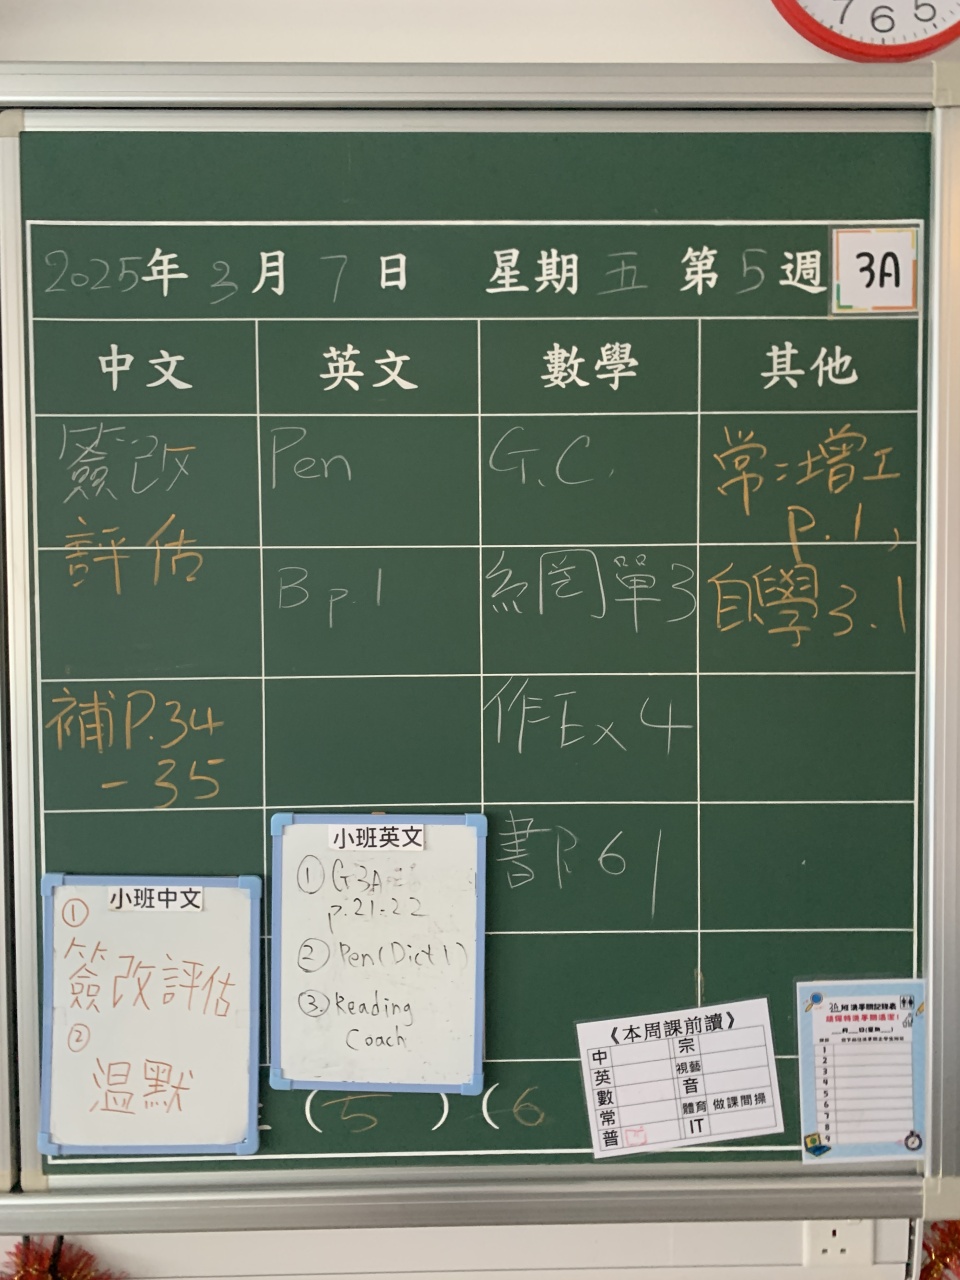 7 6 5
2025年 3月 7日 星期五 第5週
3A
中文 英文 數學 其他
簽改
評估
補P.34
-35
Pen
B p.1
G.C.
網單3
作Ex 4
書P.61
常:增工
p.1,
自學3.1
小班中文
①
簽改評估
②
溫默
小班英文
① G3A
p.21-22
② Pen(Dict 1)
③. Reading
Coach
(5 ) (6
《本周課前讀》
中 宗
英 視藝
數 音
常 體育 做課間操
普 IT
1
2
3
4
5
6
7
8
9